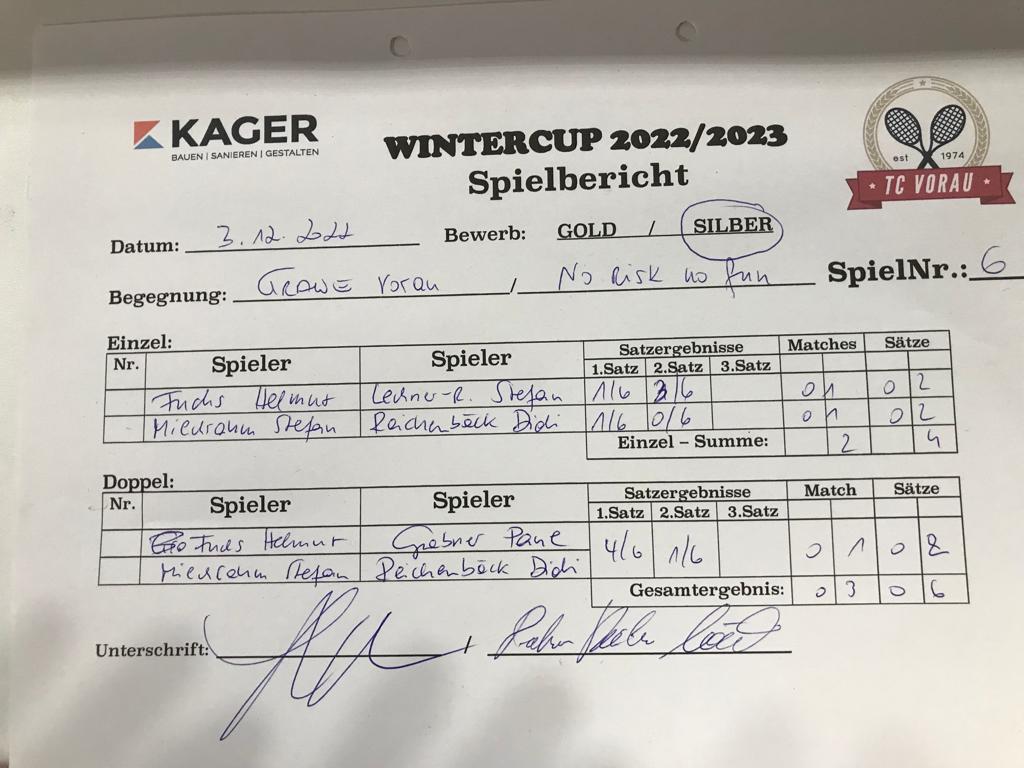 KAGER
BAUEN | SANIEREN | GESTALTEN
WINTERCUP 2022/2023
Spielbericht
est 1974
TC VORAU
Datum: 3.12.2022 Bewerb: GOLD / SILBER
Begegnung: GRAWE Vorau / No Risk no fun SpielNr.: 6
Einzel:
Nr. Spieler Spieler Satzergebnisse Matches Sätze
1.Satz 2.Satz 3.Satz
Fuchs Helmut Lechner-R. Stefan 1/6 /6 0 1 0 2
Miedrahm Stefan Reichenböck Didi 1/6 0/6 0 1 0 2
Einzel – Summe: 2 4
Doppel:
Nr. Spieler Spieler Satzergebnisse Match Sätze
1.Satz 2.Satz 3.Satz
Fuchs Helmut Grabner 4/6 1/6 0 1 0 2
Miedrahm Stefan Reichenböck Didi
Gesamtergebnis: 0 3 0 6
Unterschrift: /